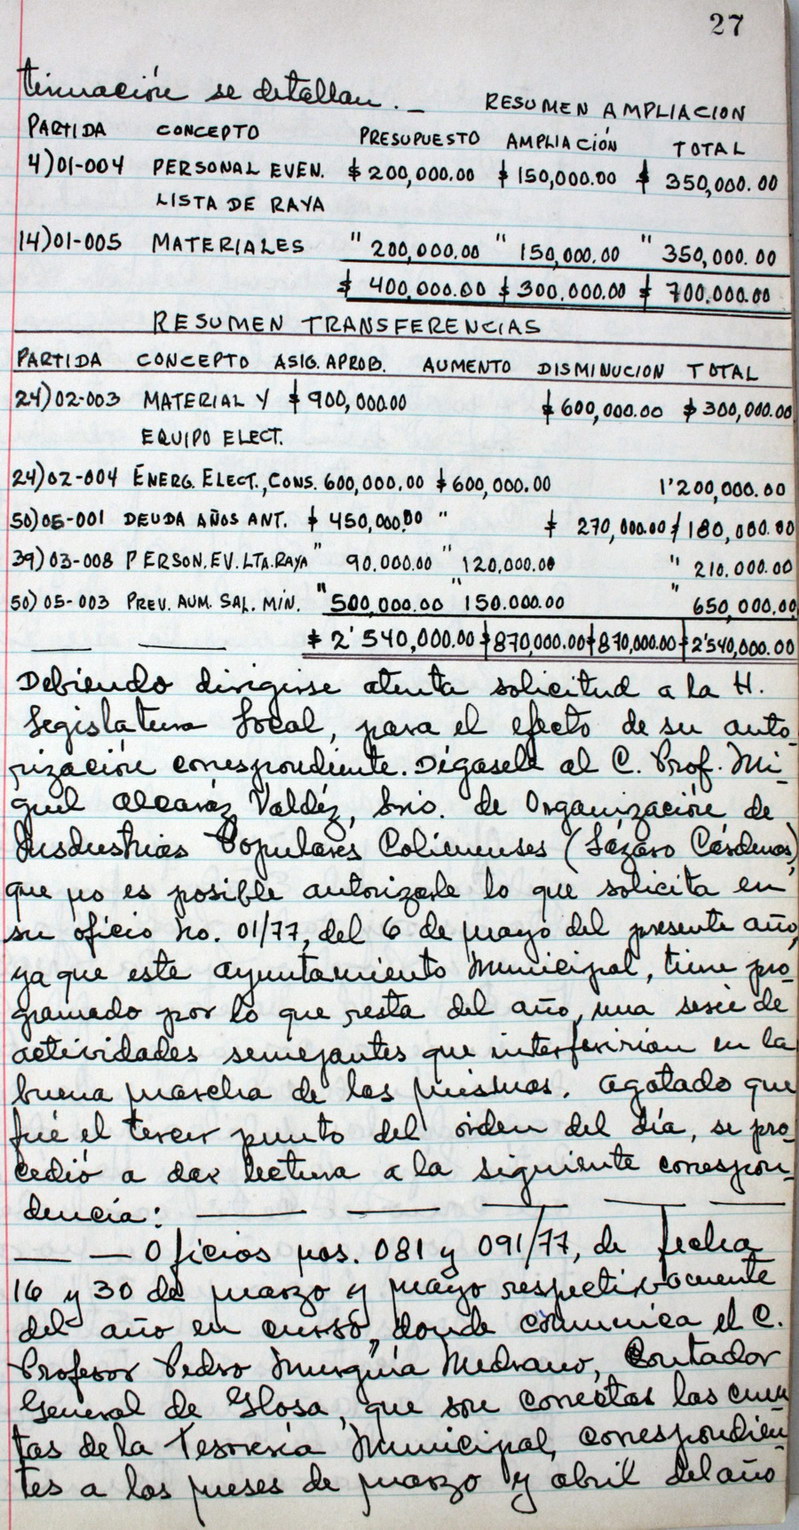 27
tinuación se detallan._ RESUMEN AMPLIACION
PARTIDA CONCEPTO PRESUPUESTO AMPLIACIÓN TOTAL
4)01-004 PERSONAL EVEN. $ 200,000.00 $ 150,000.00 $ 350,000.00
LISTA DE RAYA
14)01-005 MATERIALES " 200,000.00 " 150,000.00 " 350,000.00
$ 400,000.00 $ 300,000.00 $ 700.000.00
RESUMEN TRANSFERENCIAS
PARTIDA CONCEPTO ASIG. APROB. AUMENTO DISMINUCION TOTAL
24)02-003 MATERIAL Y $ 900,000.00 $ 600,000.00 $ 300,000.00
EQUIPO ELECT.
24)02-004 ENERG. ELECT., CONS. 600,000.00 $ 600,000.00 1'200,000.00
50)05-001 DEUDA AÑOS ANT. $ 450,000.00 " $ 270,000.00 / 180,000.00
39)03-008 PERSON. EV. LTA. RAYA " 90.000.00 " 120,000.00 " 210.000.00
50)05-003 PREV. AUM. SAL. MÍN. " 500,000.00 " 150.000.00 " 650,000.00
$ 2'540,000.00 $ 870,000.00 $ 870,000.00 $ 2'540,000.00
Debiendo dirigirse atenta solicitud a la H.
Legislatura Local, para el efecto de su auto-
rización correspondiente. Dígasele al C. Prof. Mi-
guel Alcaráz Valdéz, Srio. de Organización de
Industrias Populares Colimenses (Lázaro Cárdenas)
que no es posible autorizarle lo que solicita en
su oficio no. 01/77, del 6 de mayo del presente año,
ya que este ayuntamiento Municipal, tiene pro-
gramado por lo que resta del año, una serie de
actividades semejantes que interferirían en la
buena marcha de las mismas. Agotado que
fué el tercer punto del órden del día, se pro-
cedió a dar lectura a la siguiente correspon-
dencia:
Oficios nos. 081 y 091/77, de fecha
16 y 30 de marzo y mayo respectivamente
del año en curso, donde comunica el C.
Profesor Pedro Murguía Medrano, Contador
General de Glosa, que son correctas las cuen
tas de la Tesorería Municipal, correspondien
tes a los meses de marzo y abril del año